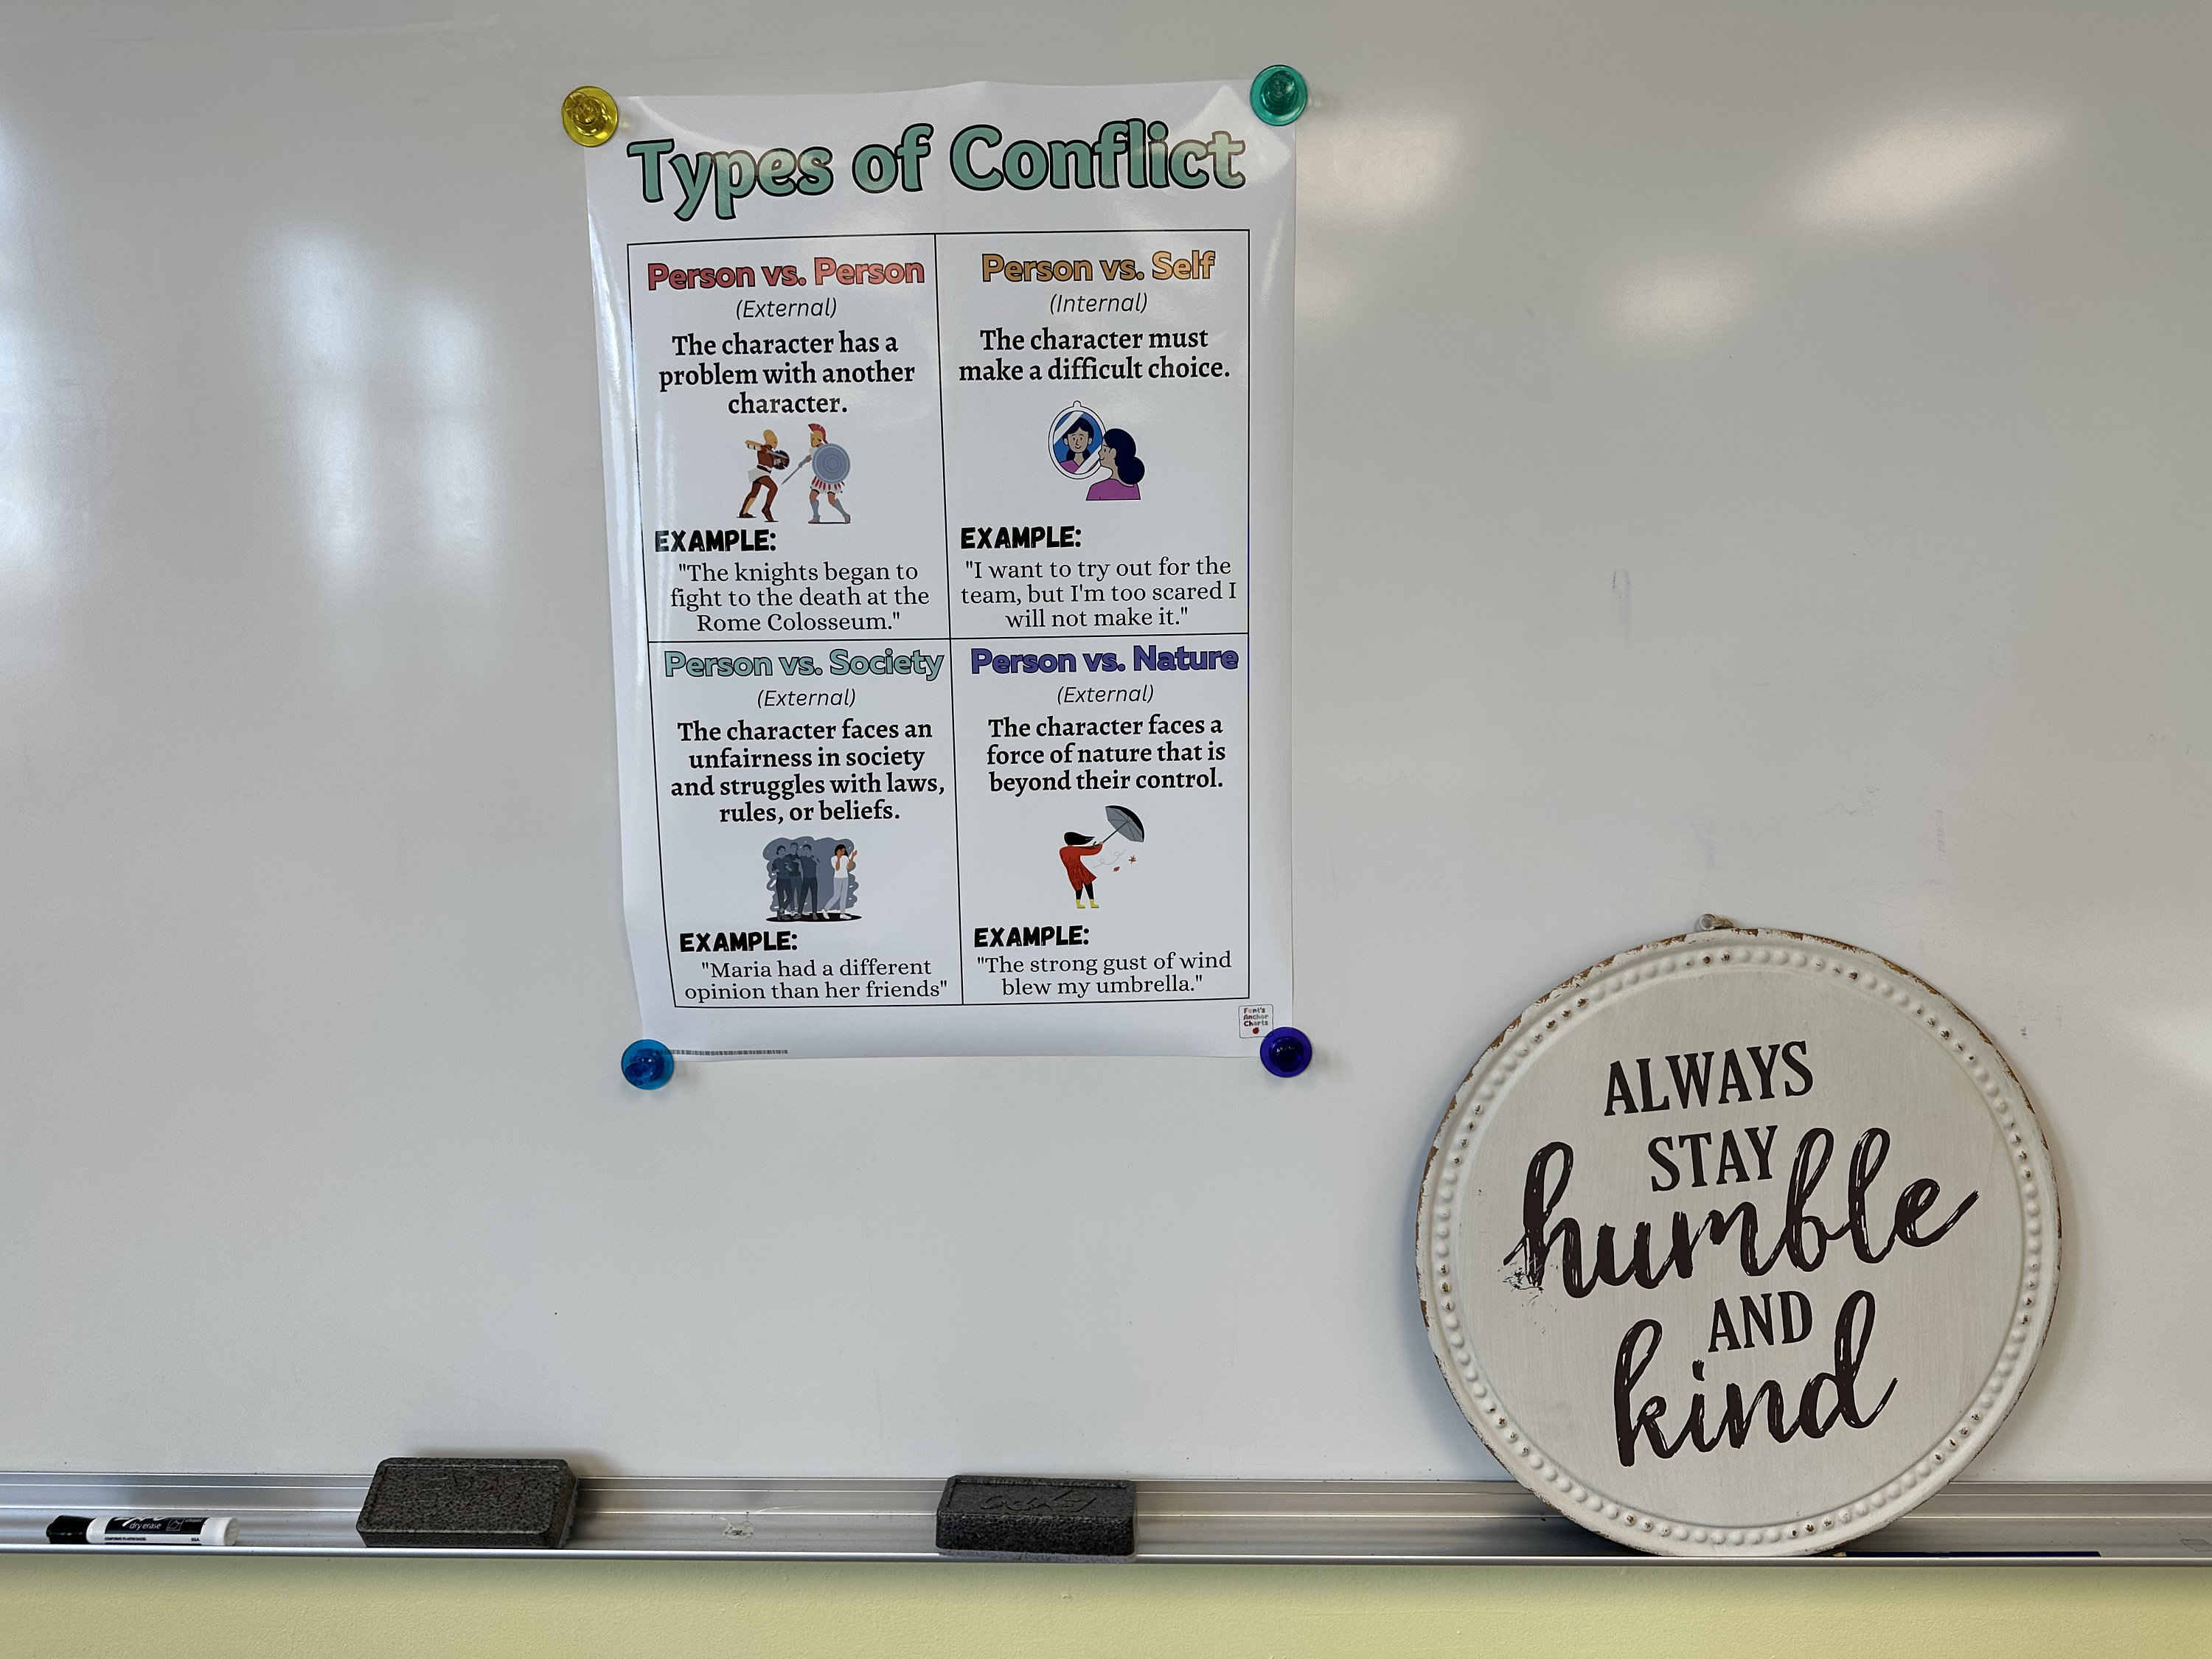 Types of Conflict
Person vs. Person
(External)
The character has a
problem with another
character.
EXAMPLE:
"The knights began to
fight to the death at the
Rome Colosseum."
Person vs. Self
(Internal)
The character must
make a difficult choice.
EXAMPLE:
"I want to try out for the
team, but I'm too scared I
will not make it."
Person vs. Society
(External)
The character faces an
unfairness in society
and struggles with laws,
rules, or beliefs.
EXAMPLE:
"Maria had a different
opinion than her friends"
Person vs. Nature
(External)
The character faces a
force of nature that is
beyond their control.
EXAMPLE:
"The strong gust of wind
blew my umbrella."
Font's
Anchor
Charts
ALWAYS
STAY
humble
AND
kind
dry erase
EXPO